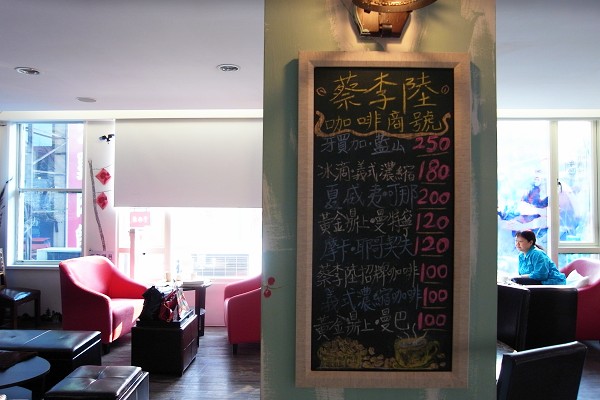 蔡李陸
咖啡商號
牙買加·藍山 250
冰滴·義式濃縮 180
夏威夷·可那 200
黃金鼎上·曼特寧 120
摩卡·耶加雪夫 120
蔡李陸招牌咖啡 100
義式濃縮咖啡 100
黃金鼎上·曼巴 100